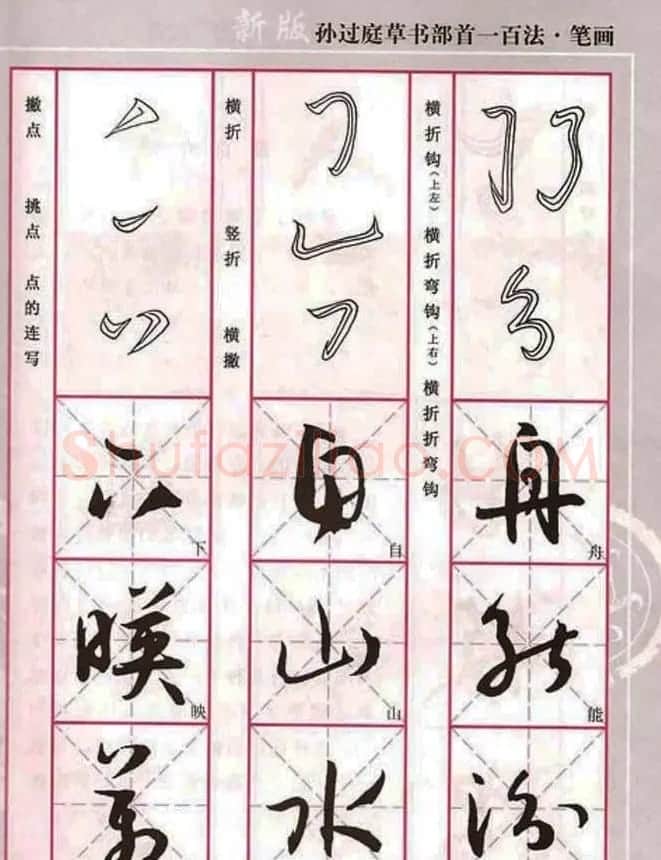 新版 孙过庭草书部首一百法·笔画
横折钩(上左) 横折弯钩(上右) 横折折弯钩
横折 竖折 横撇
撇点 挑点 点的连写
Shufaziliao.COM
舟
舟
能
能
自
自
山
山
水
下
下
映
映